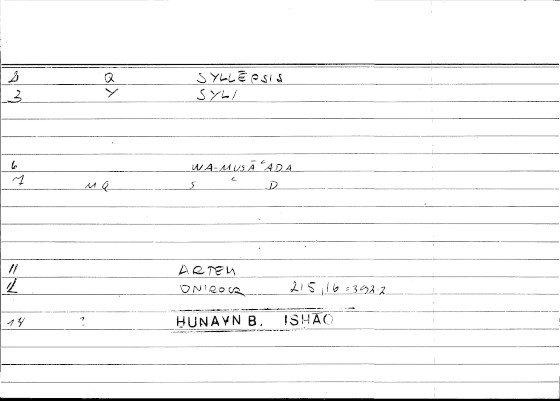 2 Q SYLLĒPSIS
3 Y SYLI
6 WA-MUSĀʿADA
7 MQ S ʿ D
11 ARTEM
12 ONIROCR 215,16 = 392,2
14 ? HUNAYN B. ISHAQ